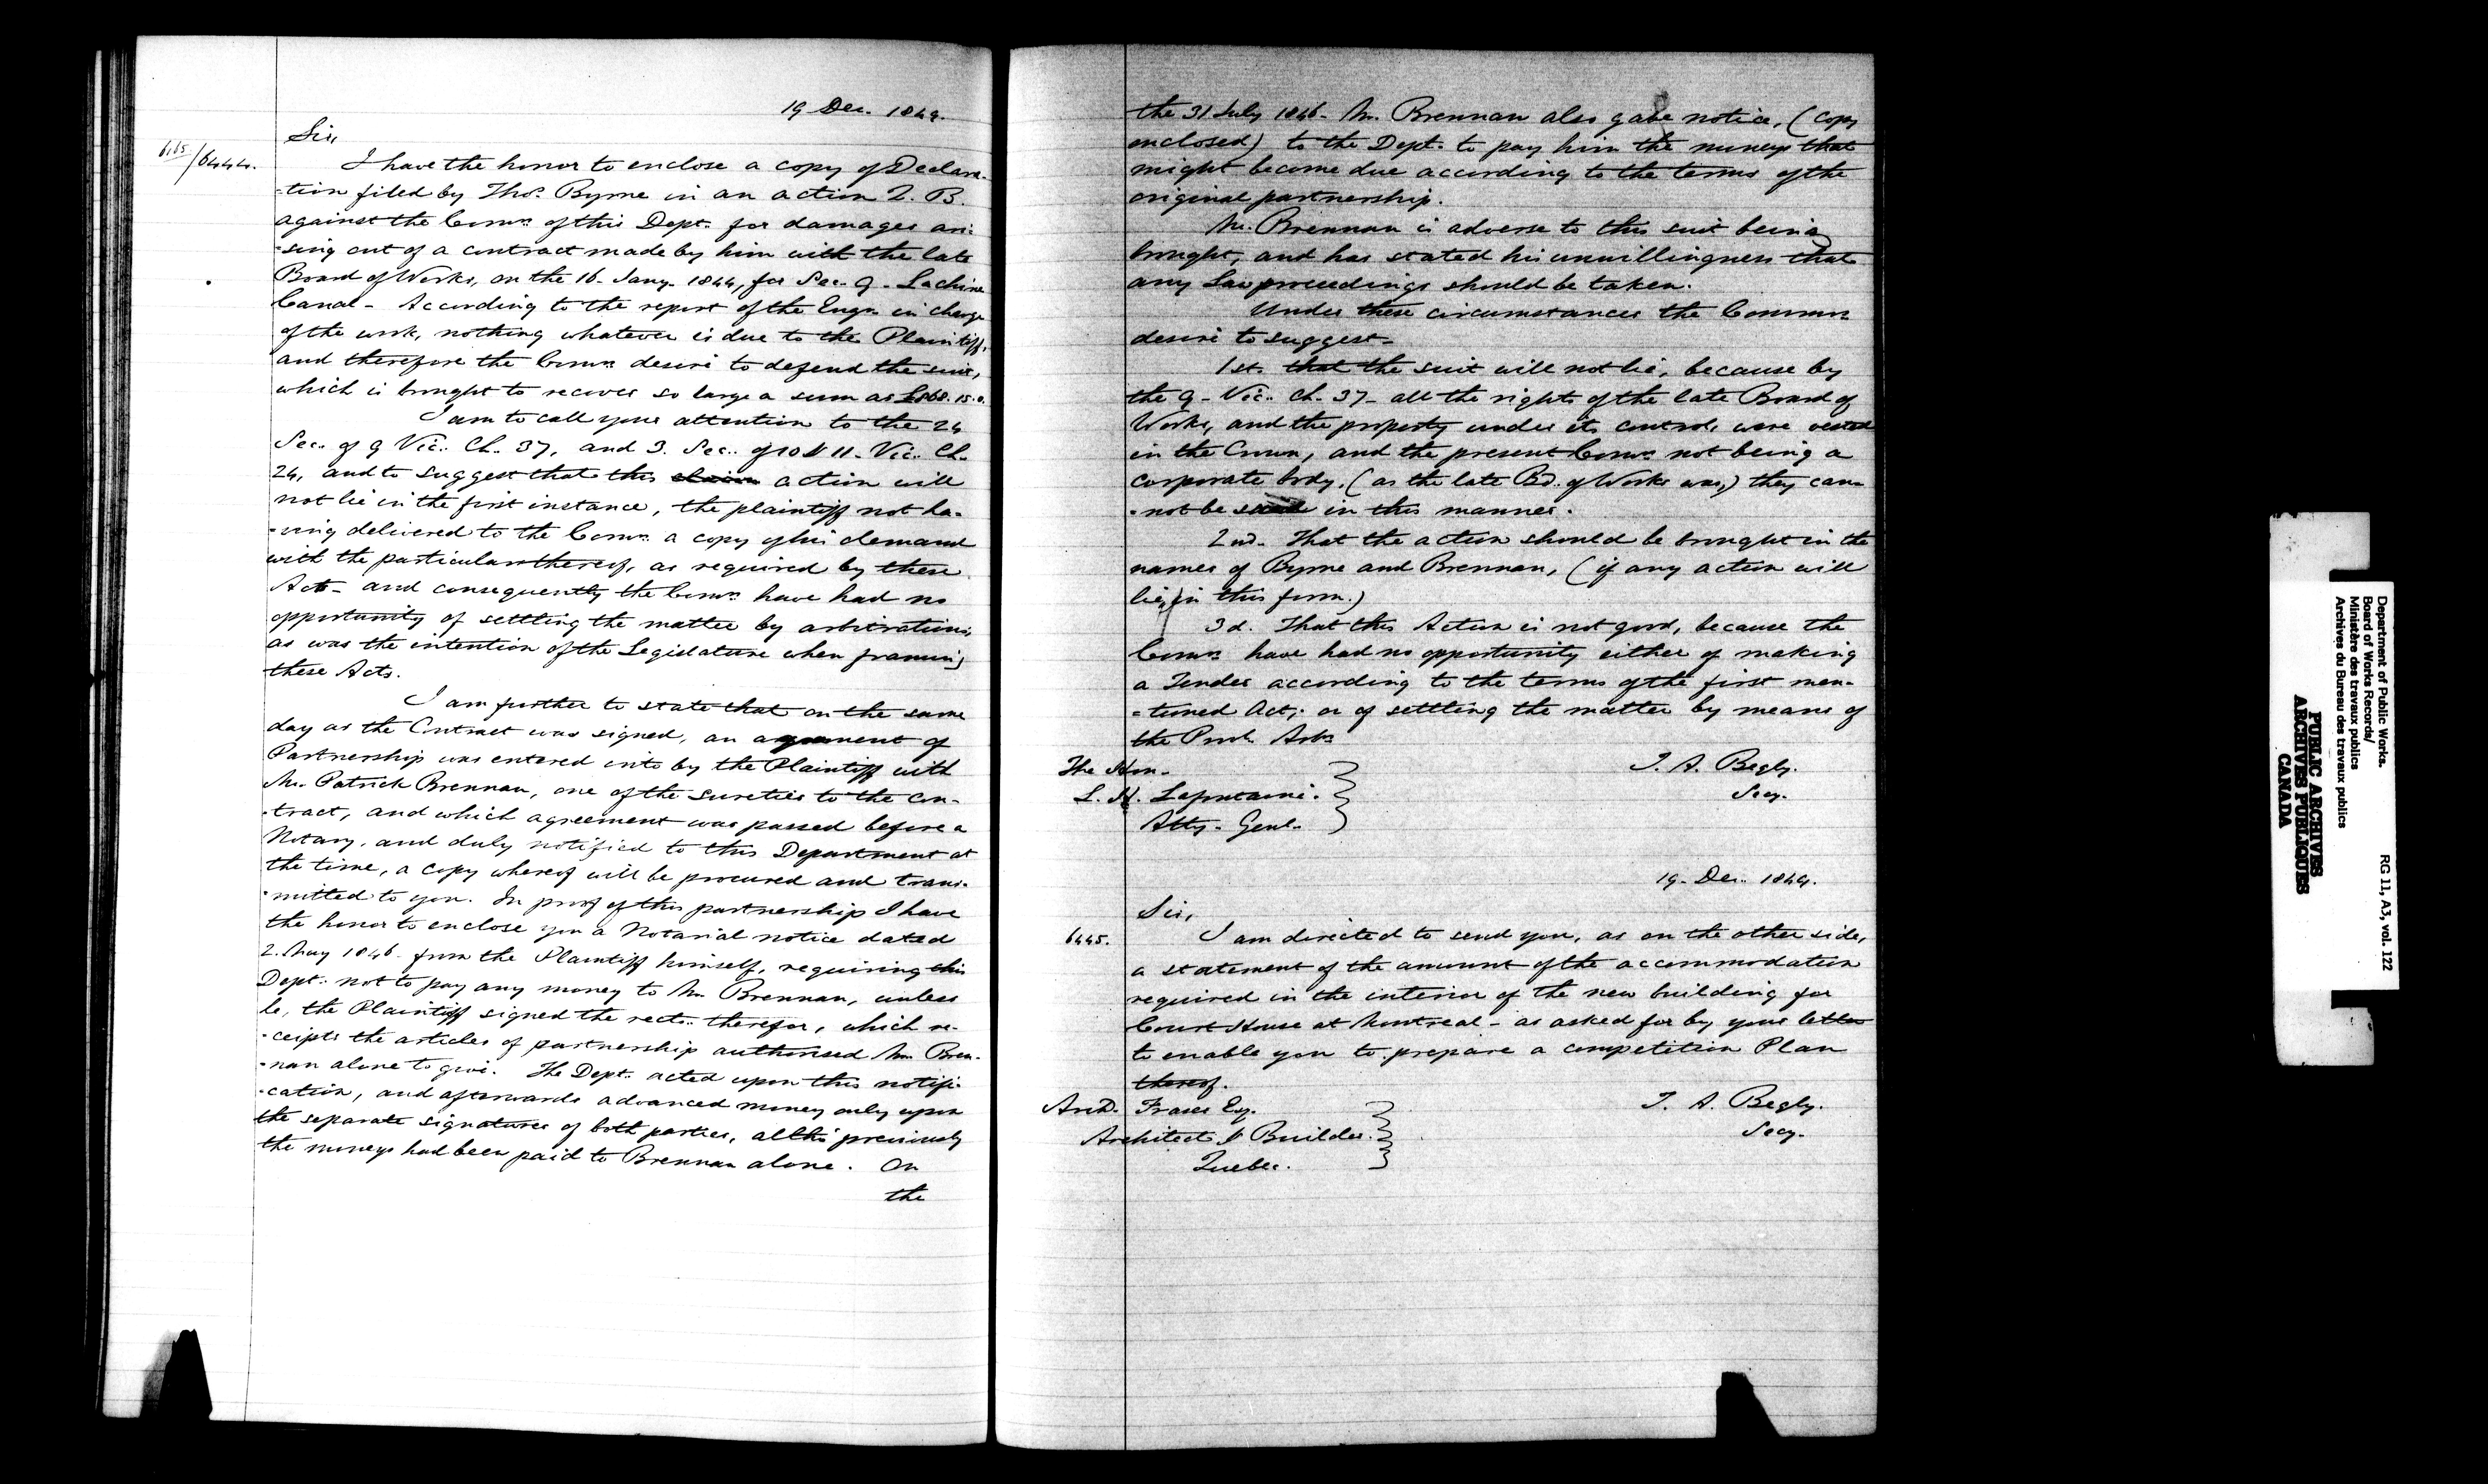 19 Dec. 1849.
Sir,
6165/6444.
I have the honor to enclose a copy of Declara-
-tion filed by Thos. Byrne in an action Q. B.
against the Comrs. of this Dept. for damages ari-
-sing out of a contract made by him with the late
Board of Works, on the 16. Jany. 1844, for Sec. 9 - Lachine
Canal - According to the report of the Engr. in charge
of the work, nothing whatever is due to the Plaintiff,
and therefore the Comrs. desire to defend the suit,
which is brought to recover so large a sum as 15.0.
I am to call your attention to the 24
Sec. of 9 Vic. Ch. 37, and 3. Sec. of 10 & 11. Vic. Ch.
24, and to suggest that this claim action will
not lie in the first instance, the plaintiff not ha-
-ving delivered to the Comrs. a copy of his demand
with the particulars thereof, as required by these
Acts - and consequently the Comrs. have had no
opportunity of settling the matter by arbitration,
as was the intention of the Legislature when framing
these Acts.
I am further to state that on the same
day as the Contract was signed, an agreement of
Partnership was entered into by the Plaintiff with
Mr. Patrick Brennan, one of the sureties to the Con-
-tract, and which agreement was passed before a
Notary, and duly notified to this Department at
the time, a copy whereof will be procured and trans-
-mitted to you. In proof of this partnership I have
the honor to enclose you a Notarial notice dated
2. May 1846 - from the Plaintiff himself, requiring this
Dept. not to pay any money to Mr. Brennan, unless
he, the Plaintiff signed the rects. therefor, which re-
-ceipts the articles of partnership authorised Mr. Bren-
-nan alone to give. The Dept. acted upon this notifi-
-cation, and afterwards advanced money only upon
the separate signatures of both parties, altho' previously
the moneys had been paid to Brennan alone. On
the
the 31 July 1846 - Mr. Brennan also gave notice, (copy
enclosed) to the Dept. to pay him the moneys that
might become due according to the terms of the
original partnership.
Mr. Brennan is adverse to this suit being
brought, and has stated his unwillingness that
any Law proceedings should be taken.
Under these circumstances the Commrs.
desire to suggest -
1st. that the suit will not lie, because by
the 9 - Vic. Ch. 37 - all the rights of the late Board of
Works, and the property under its control, were vested
in the Crown, and the present Comrs. not being a
corporate body, (as the late Bd. of Works was,) they can-
-not be sued in this manner.
2nd. That the action should be brought in the
names of Byrne and Brennan, (if any action will
lie, in this form.)
3d. That this Action is not good, because the
Comrs. have had no opportunity either of making
a Tender according to the terms of the first men-
-tioned Act; or of settling the matter by means of
the Provl. Arbs.
The Hon.
T. A. Begly.
L. H. Lafontaine.
Secy.
Atty. Genl.
19. Dec. 1849.
Sir,
6445.
I am directed to send you, as on the other side,
a statement of the amount of the accommodation
required in the interior of the new building for
Court House at Montreal - as asked for by your letter
to enable you to prepare a competition Plan
thereof.
Archd. Fraser Esq.
T. A. Begly.
Architect & Builder.
Secy.
Quebec.
Department of Public Works.
Board of Works Records/
Ministère des travaux publics
Archives du Bureau des travaux publics
RG 11, A3, vol. 122
PUBLIC ARCHIVES
ARCHIVES PUBLIQUES
CANADA